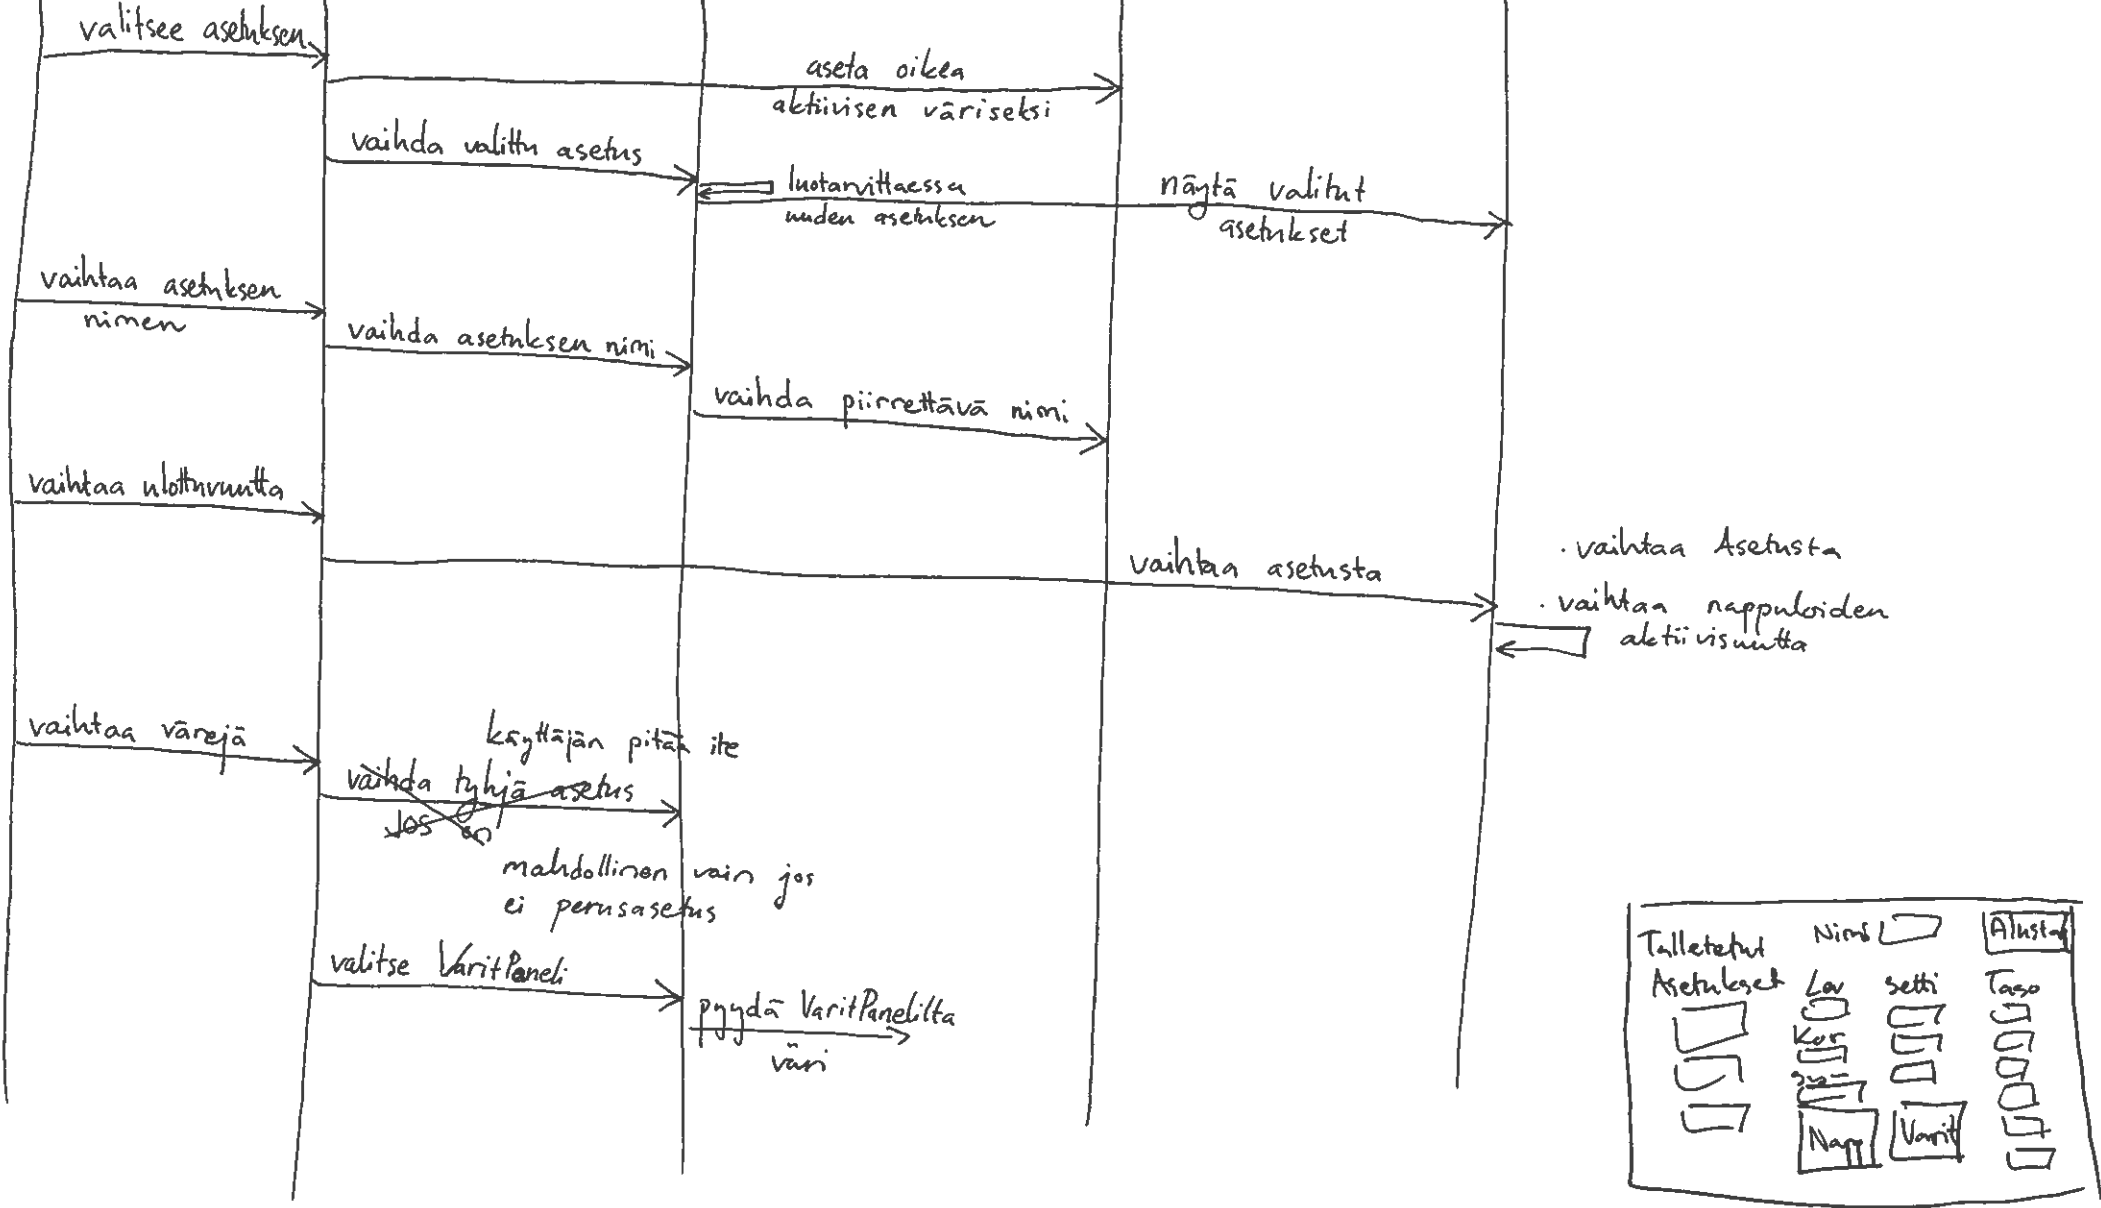 valitsee asetuksen
aseta oikea
aktiivisen väriseksi
vaihda valittu asetus
luo tarvittaessa
uuden asetuksen
näytä valitut
asetukset
vaihtaa asetuksen
nimen
vaihda asetuksen nimi
vaihda piirrettävä nimi
vaihtaa ulottuvuutta
vaihtaa asetusta
· vaihtaa Asetusta
· vaihtaa nappuloiden
aktiivisuutta
vaihtaa värejä
käyttäjän pitää ite
vaihda tyhjä asetus
jos on
mahdollinen vain jos
ei perusasetus
valitse VaritPaneli
pyydä VaritPanelilta
väri
Talletetut
Asetukset
Nimi
Alusta
Lev
Setti
Taso
Kor
Napp
Varit